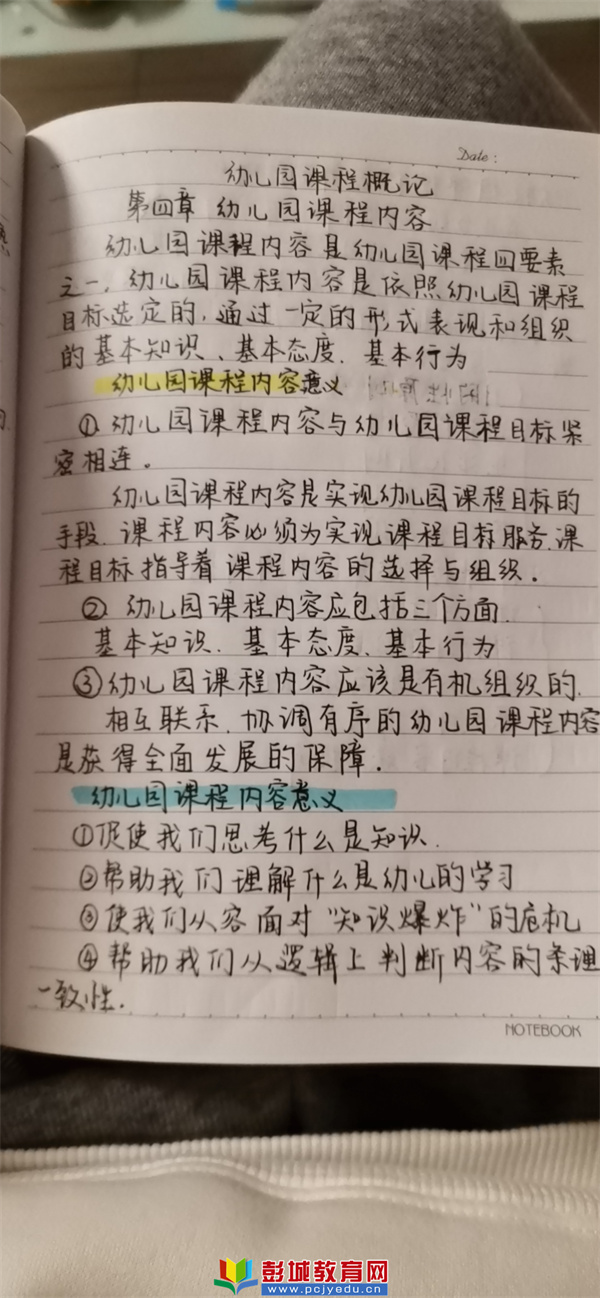 Date:
幼儿园课程概论
第四章 幼儿园课程内容
幼儿园课程内容是幼儿园课程四要素
之一,幼儿园课程内容是依照幼儿园课程
目标选定的,通过一定的形式表现和组织
的基本知识、基本态度、基本行为
幼儿园课程内容意义
①幼儿园课程内容与幼儿园课程目标紧
密相连。
幼儿园课程内容是实现幼儿园课程目标的
手段.课程内容必须为实现课程目标服务,课
程目标指导着课程内容的选择与组织.
② 幼儿园课程内容应包括三个方面.
基本知识.基本态度、基本行为
③幼儿园课程内容应该是有机组织的.
相互联系.协调有序的幼儿园课程内容
是获得全面发展的保障.
幼儿园课程内容意义
①促使我们思考什么是知识.
②帮助我们理解什么是幼儿的学习
③使我们从容面对“知识爆炸”的危机
④帮助我们从逻辑上判断内容的条理
一致性.
NOTEBOOK
彭城教育网
www.pcjyedu.cn